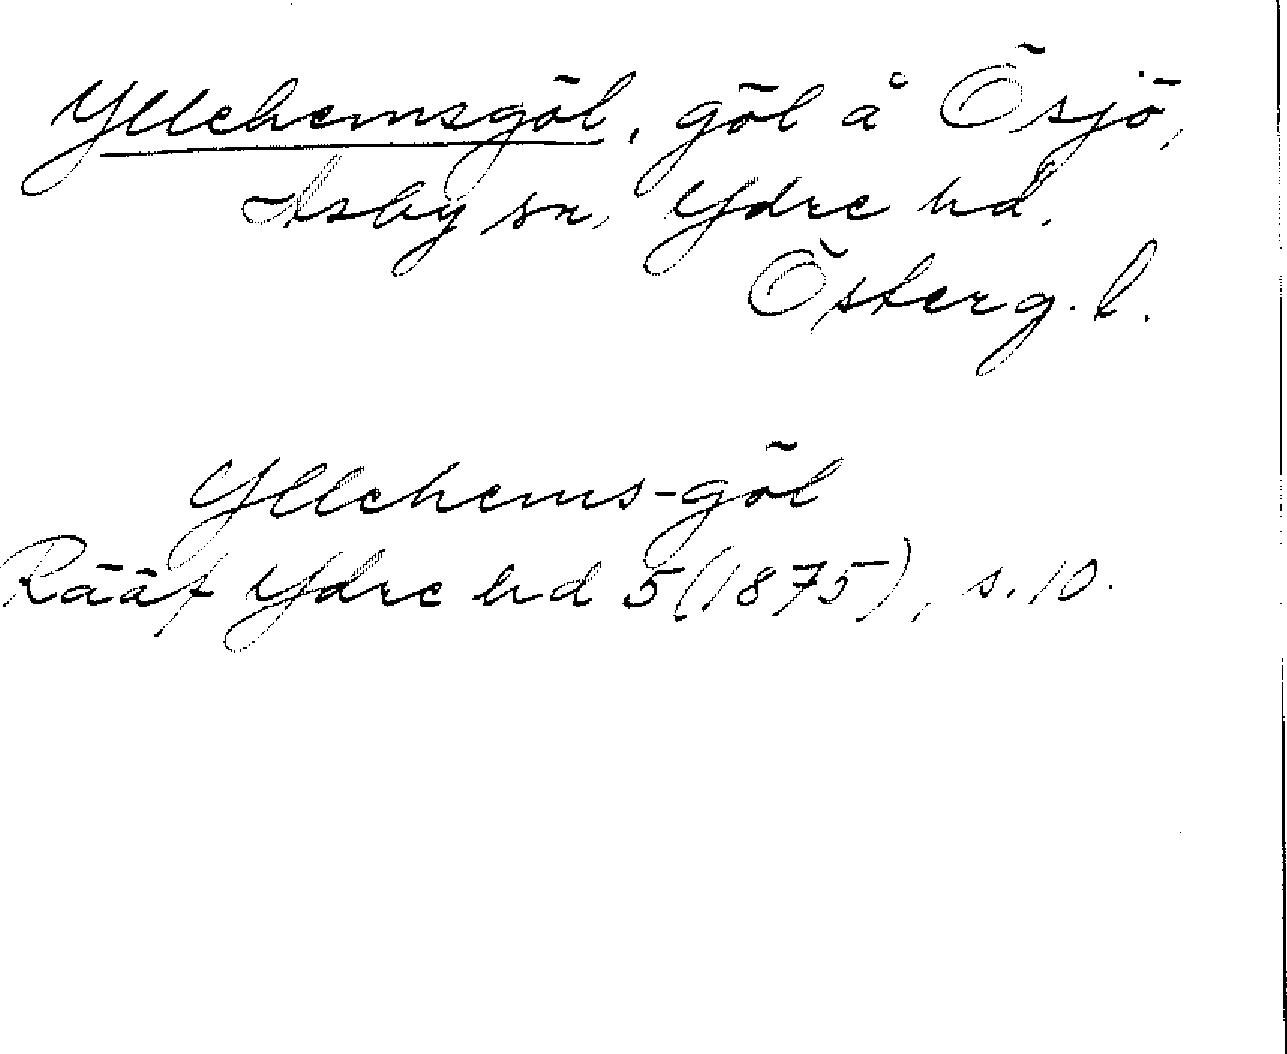 Yllehemsgöl, göl å Ösjö,
Asby sn, Ydre hd.
Österg. l.
Yllehems-göl
Rääf Ydre hd 5 (1875), s. 10.